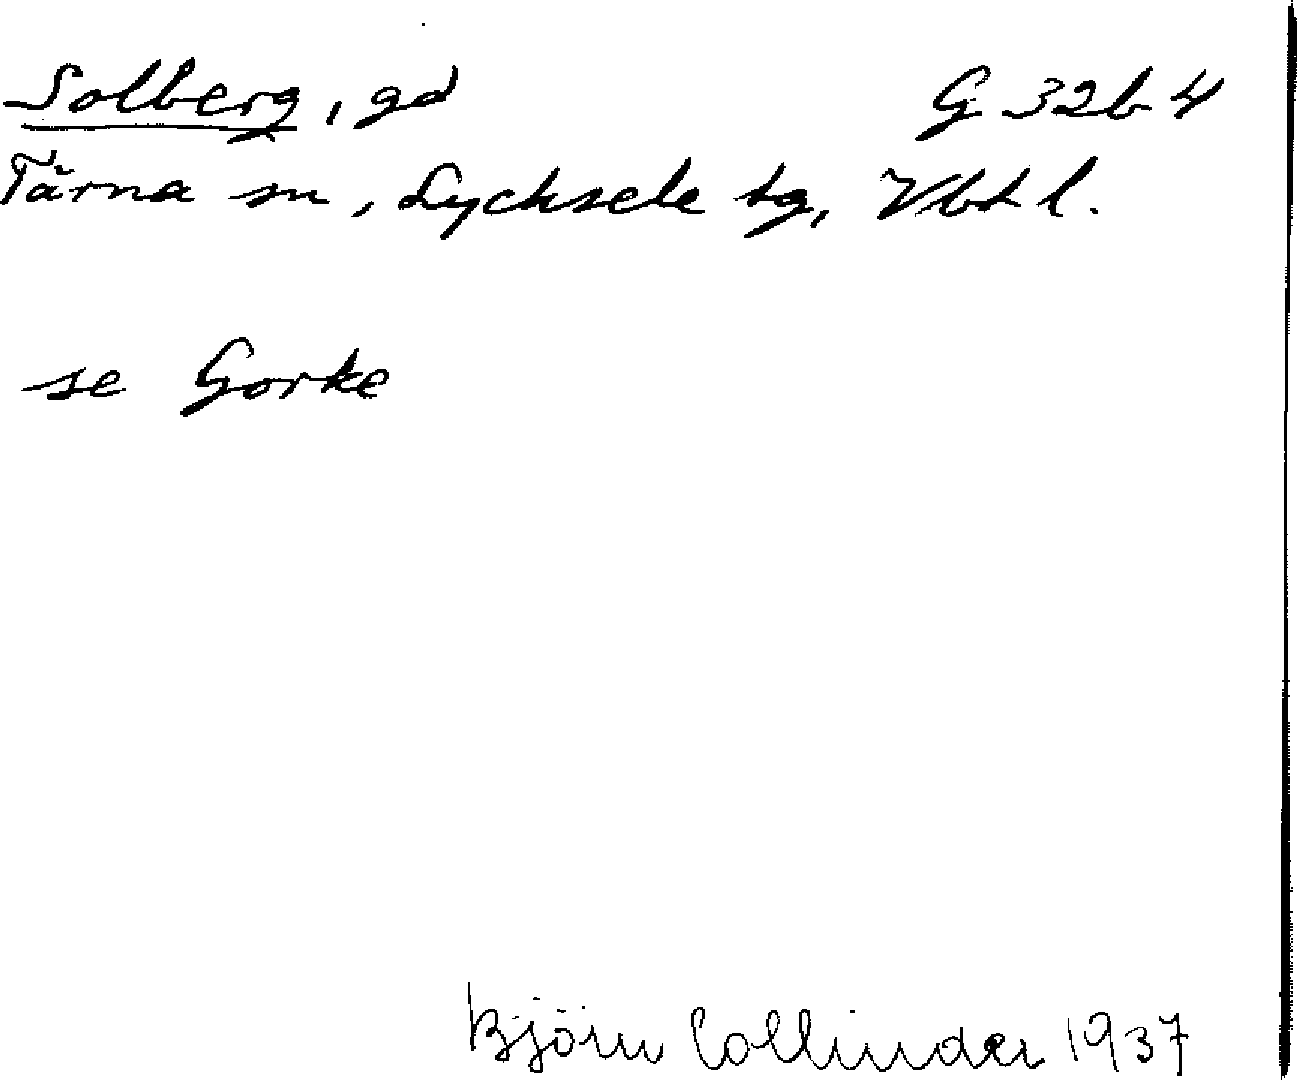 Solberg, gd G 32b 4
Tärna sn, Lycksele tg, Vbtl.
se Gorke
Björn Collinder 1937